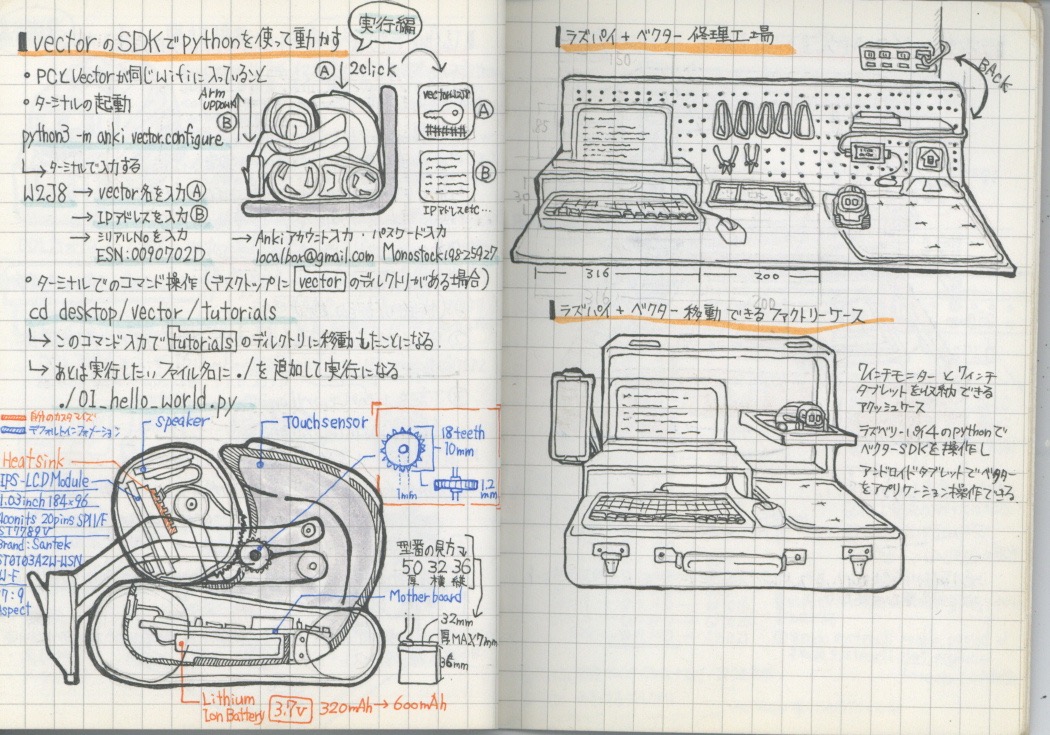 vectorのSDKでpythonを使って動かす
実行編
・PCとVectorが同じwifiに入っていること
・ターミナルの起動
python3 -m anki vector.configure
↳ターミナルで入力する
W2J8 → vector名を入力Ⓐ
→ IPアドレスを入力Ⓑ
→ シリアルNoを入力
ESN:0090702D
→ Ankiアカウント入力・パスワード入力
localbox@gmail.com Monostock198-25427
Ⓐ 2click
Arm
up
Ⓑ
vector W2J8
Ⓐ
Ⓑ
IPアドレスetc…
・ターミナルでのコマンド操作(デスクトップに vector のディレクトリがある場合)
cd desktop/vector/tutorials
↳このコマンド入力で tutorials のディレクトリに移動したことになる.
↳あとは実行したいファイル名に ./を追加して実行になる
./01_hello_world.py
自分のカスタマイズ
デフォルトインフォメーション
speaker
Touchsensor
Heatsink
IPS-LCD Module
1.03inch 184×96
400nits 20pins SPI I/F
ST7789V
Brand: Santek
ST0103A2W-WSN
W-F
17:9
Aspect
18teeth
10mm
1mm
1.2
mm
型番の見方
50 32 36
厚 横 縦
Motherboard
32mm
厚MAX7mm
36mm
Lithium
Ion Battery 3.7v 320mAh→600mAh
ラズパイ+ベクター 修理工場
BACK
316
200
ラズパイ+ベクター 移動できるファクトリーケース
7インチモニターと7インチ
タブレットを収納できる
アタッシュケース
ラズベリーパイ4のpythonで
ベクターSDKを操作し
アンドロイドタブレットでベクター
をアプリケーション操作できる.